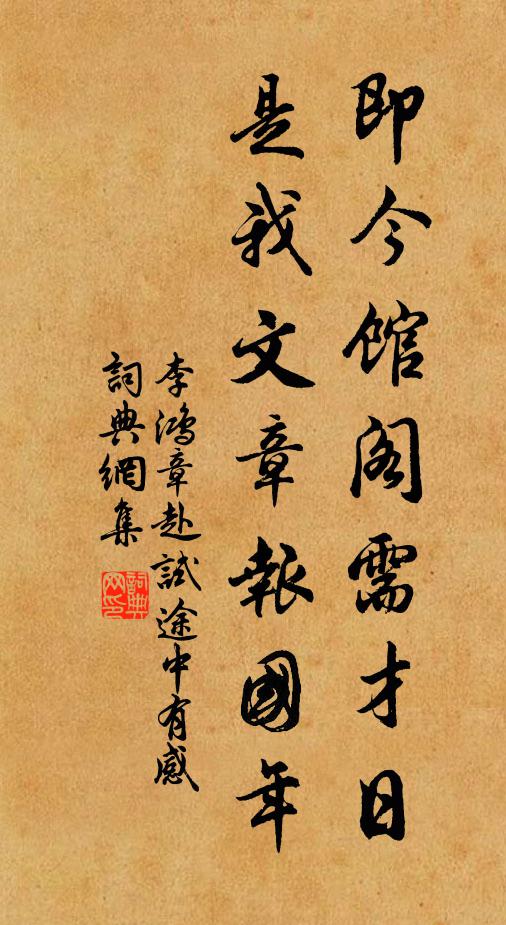 即今馆阁需才日
是我文章報國年
李鴻章赴試途中有感
詞典網集
詞典网印